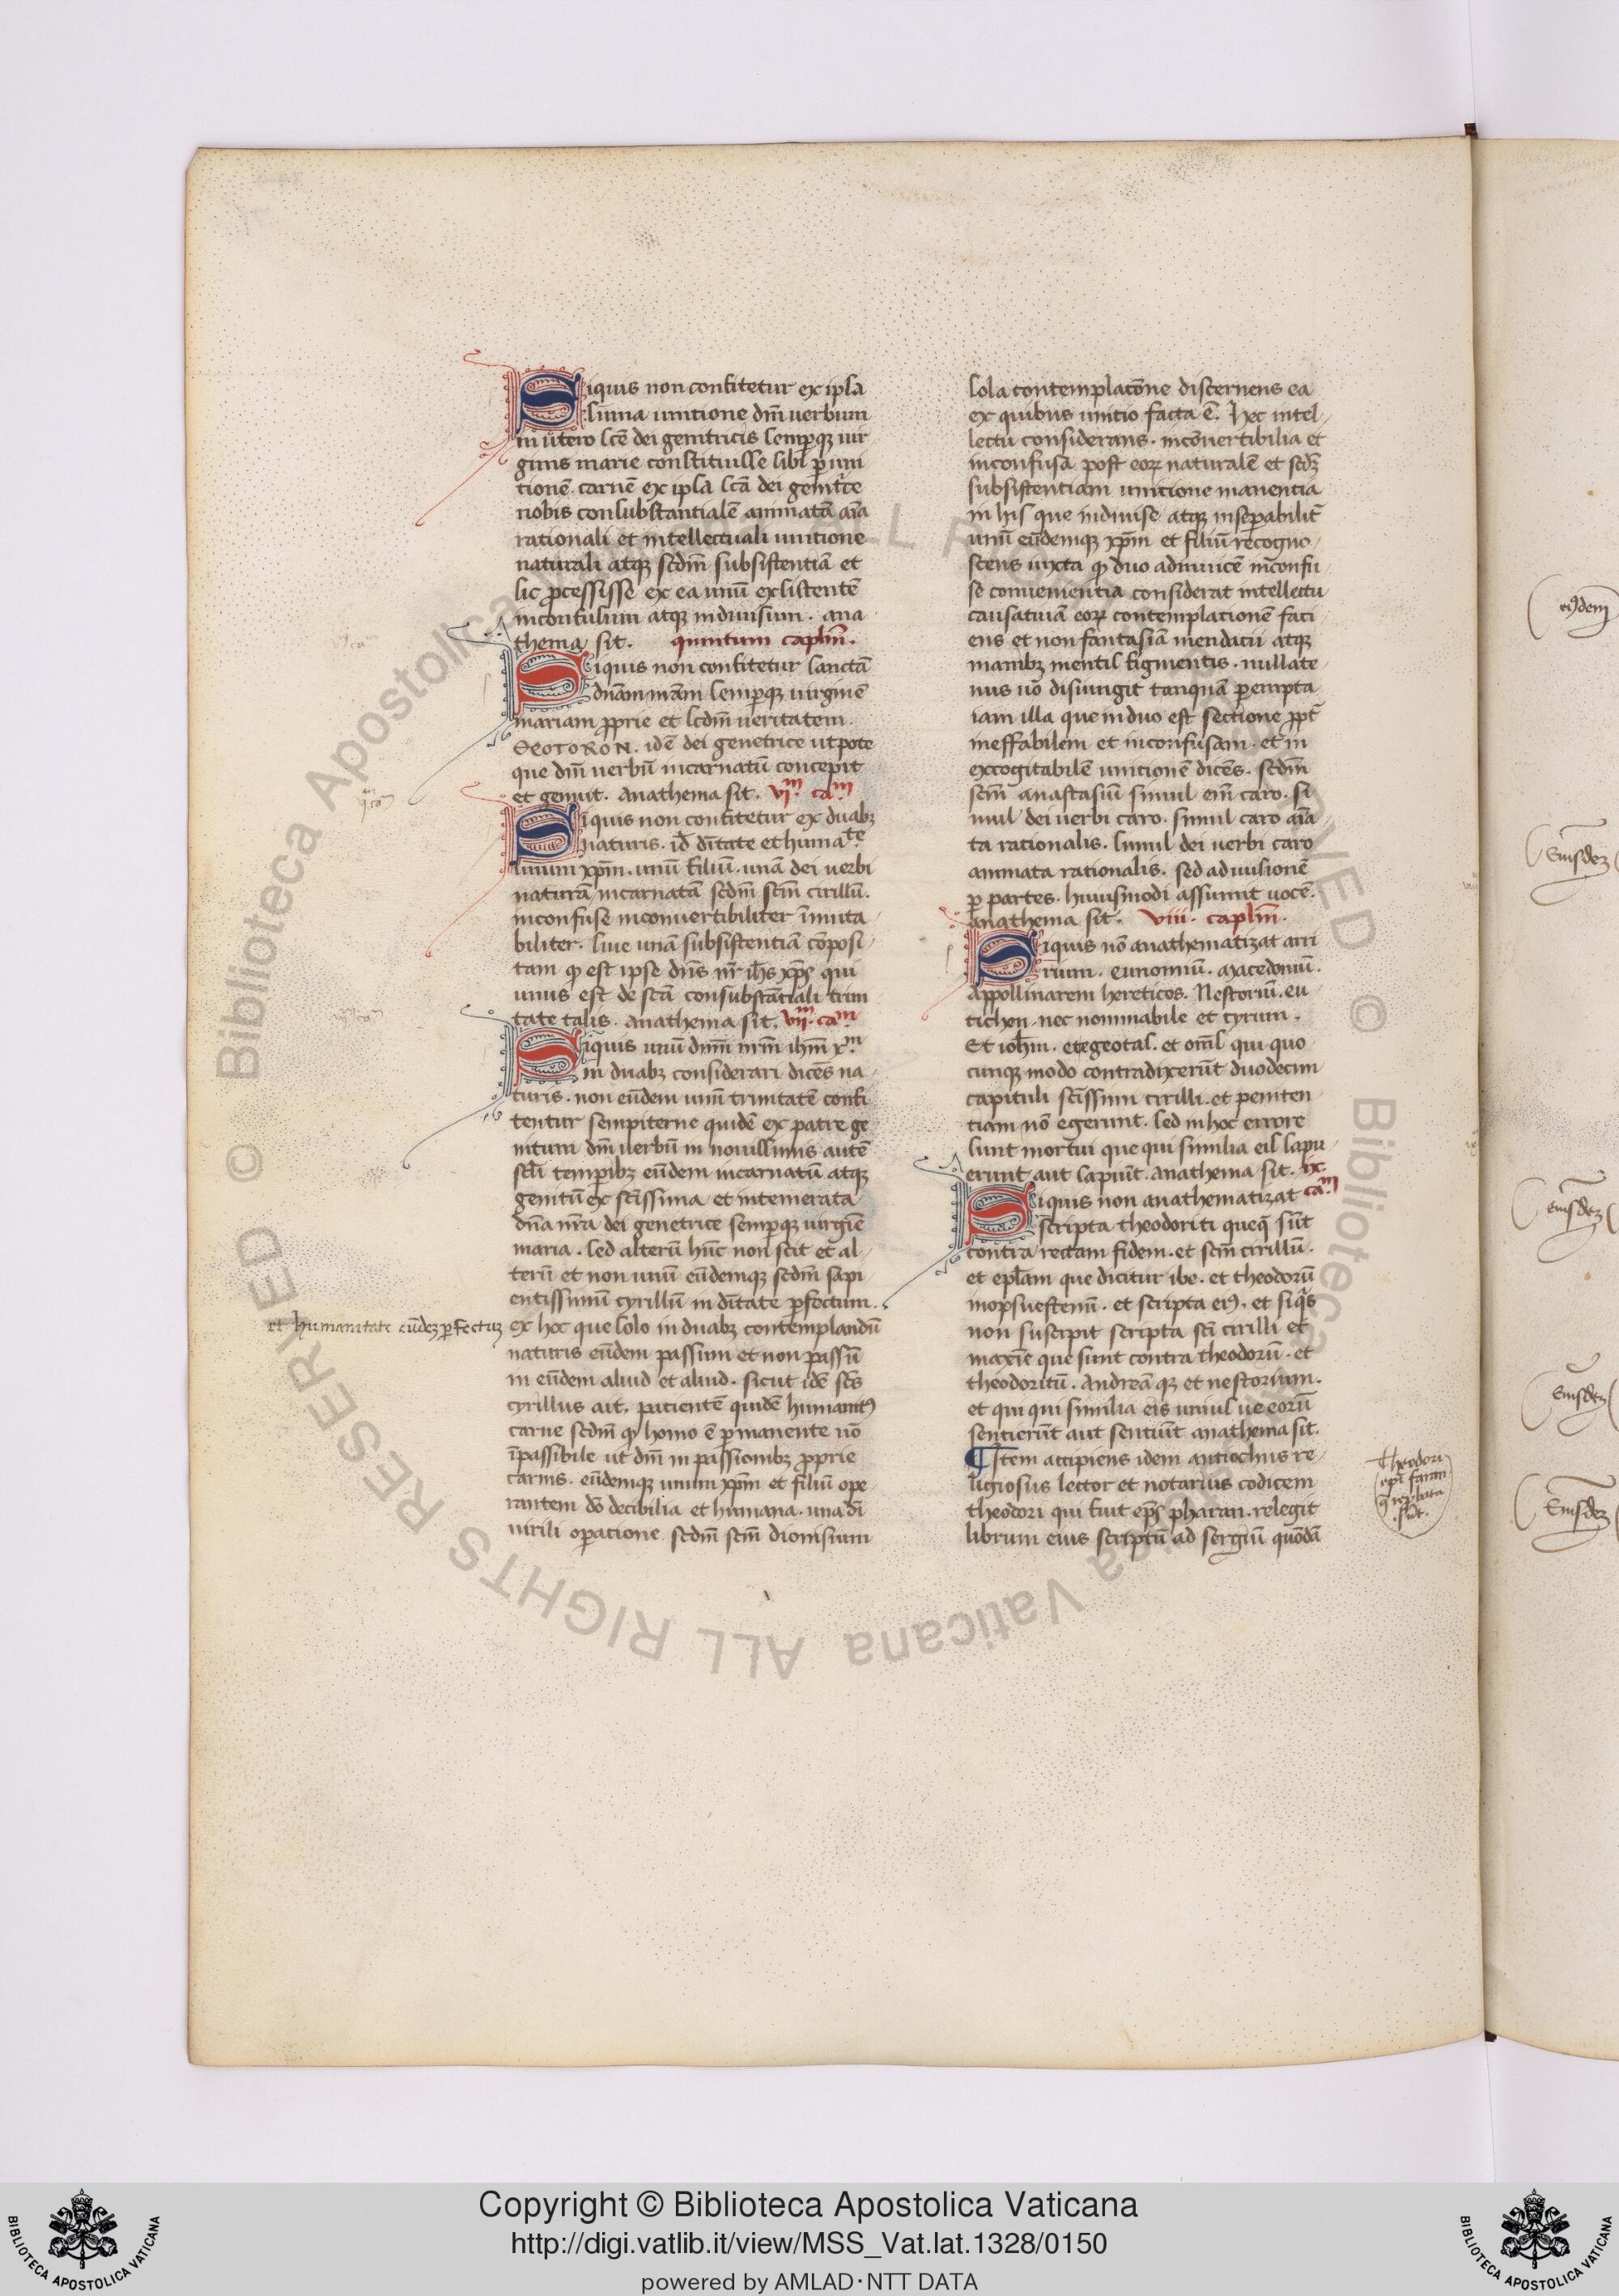 Siquis non confitetur ex ipsa
summa unitione dm̄ uerbum
in utero sc̄e dei genitricis semp̄qꝫ uir
ginis marie constituisse sibi ꝑ uni
tionē carnē ex ipsa sc̄a dei genitͥce
nobis consubstantialē animatā aīa
rationali et intellectuali unitione
naturali atqꝫ scdm̄ subsistentiā et
sic ꝓcessisse ex ea unū existentē
inconfusum atqꝫ indiuisum. ana
thema sit. quintum caplm̄.
Siquis non confitetur sanctā
dn̄am nr̄am semperqꝫ uirginē
mariam ꝓprie et scdm̄ ueritatem.
ΘEOTORON. idē dei genetrice utpote
que dm̄ uerbū incarnatū concepit
et genuit. anathema sit. vi.ᵐ caᵐ
Siquis non confitetur ex duabꝫ
naturis. id̄ dītate et humaᵗᵉ
unum xp̄m. unū filiū. unā dei uerbi
naturā incarnatā scdm̄ scm̄ cirillū.
inconfuse inconuertibiliter īmuta
biliter. siue unā subsistentiā cōposi
tam ꝙ est ipse dn̄s nr̄ ih̄s xp̄s qui
unus est de scā consubstātiali trini
tate talis. anathema sit. vii.ᵐ caᵐ
Siquis unū dnm̄ nrm̄ ihm̄ xᵐ.
in duabꝫ considerari dicēs na
turis. non eūdem unū trinitatē confi
tentur sempiterne quidē ex patre ge
nitum dm̄ uerbū in nouissimis autē
scl̄i temꝑibꝫ eūdem incarnatū atqꝫ
genitū ex sc̄issima et intemerata
dn̄a nr̄a dei genetrice semꝑqꝫ uirgīe
maria. sed alterū hūc non scit et al
terū et non unū eūdemqꝫ scdm̄ sapi
entissimū cyrillū in dītate ꝑfectum.
et humanitate eūdeꝫ ꝑfectuꝫ
ex hoc que solo in duabꝫ contemplandū
naturis eūdem passum et non passū
in eūdem aliud et aliud. sicut idē scs̄
cyrillus ait. patientē quidē humanitꝰ
carne scdm̄ ꝙ homo ē ꝑmanente uō
īpassibile ut dm̄ in passionibꝫ ꝓprie
carnis. eūdemqꝫ unum xp̄m et filiū ope
rantem dō decibilia et humana. una di
uirili oꝑatione scdm̄ scm̄ dionisium
sola contemplatōne discernens ea
ex quibus unitio facta ē. Hec intel
lectu considerans. incōuertibilia et
inconfusa post eoꝝ naturalē et scdꝫ
subsistentiam unitione manentia
in his que indiuise atqꝫ insepabilit̄
unū eūdemqꝫ xp̄m et filiū recogno
scens iuxta ꝙ duo adinuicē incōfu
se conuenientia considerat intellectu
causatiuā eoꝝ contemplationē faci
ens et non fantasiā mendacii atqꝫ
manibꝫ mentis figmentis. nullate
nus uō disiungit tanquā ꝑempta
iam illa que in duo est sectione ꝓpt̄
ineffabilem et inconfusam. et in
excogitabilē unitionē dicēs. scdm̄
scm̄ anastasiū simul em̄ caro. si
mul dei uerbi caro. simul caro aīa
ta rationalis. simul dei uerbi caro
animata rationalis. sed ad uulsionē
ꝑ partes. huiusmodi assumit uocē.
anathema sit. viii. caplm̄.
Siquis nō anathematizat arri
rium. eunomiū. macedoniū.
Appollinarem hereticos. Nestoriū. eu
tichen. nec nominabile et cyrum.
Et ioh̄m. etegeotal. et oms̄ qui quo
cunqꝫ modo contradixerūt duodecim
capituli sc̄issimi cirilli. et peniten
tiam nō egerunt. sed in hoc errore
sunt mortui que qui similia eis sapu
erunt aut sapiūt. anathema sit. ix.
Siquis non anathematizat caᵐ
scripta theodoriti queqꝫ sūt
contra rectam fidem. et scm̄ cirillū.
et epl̄am que dicitur ibe. et theodorū
mopsuestenū. et scripta eiꝰ. et siqͥs
non suscipit scripta sc̄i cirilli et
maxīe que sunt contra theodorū. et
theodoritū. Andreā qꝫ et nestorium.
et qui qui similia eis uniusͧe eorū
sentierūt aut sentiūt anathema sit.
Item accipiens idem antiochus re
ligiosus lector et notarius codicem
theodori qui fuit ep̄s pharan. relegit
librum eius scriptū ad sergiū quōdā
Theodori
ep̄i faran
sūt.
eiꝰdem
Eiusdeꝫ
Eiusdeꝫ
Eiusdeꝫ
Eiusdeꝫ
© Biblioteca Apostolica Vaticana ALL RIGHTS RESERVED
Copyright © Biblioteca Apostolica Vaticana
http://digi.vatlib.it/view/MSS_Vat.lat.1328/0150
powered by AMLAD·NTT DATA
BIBLIOTECA APOSTOLICA VATICANA
BIBLIOTECA APOSTOLICA VATICANA